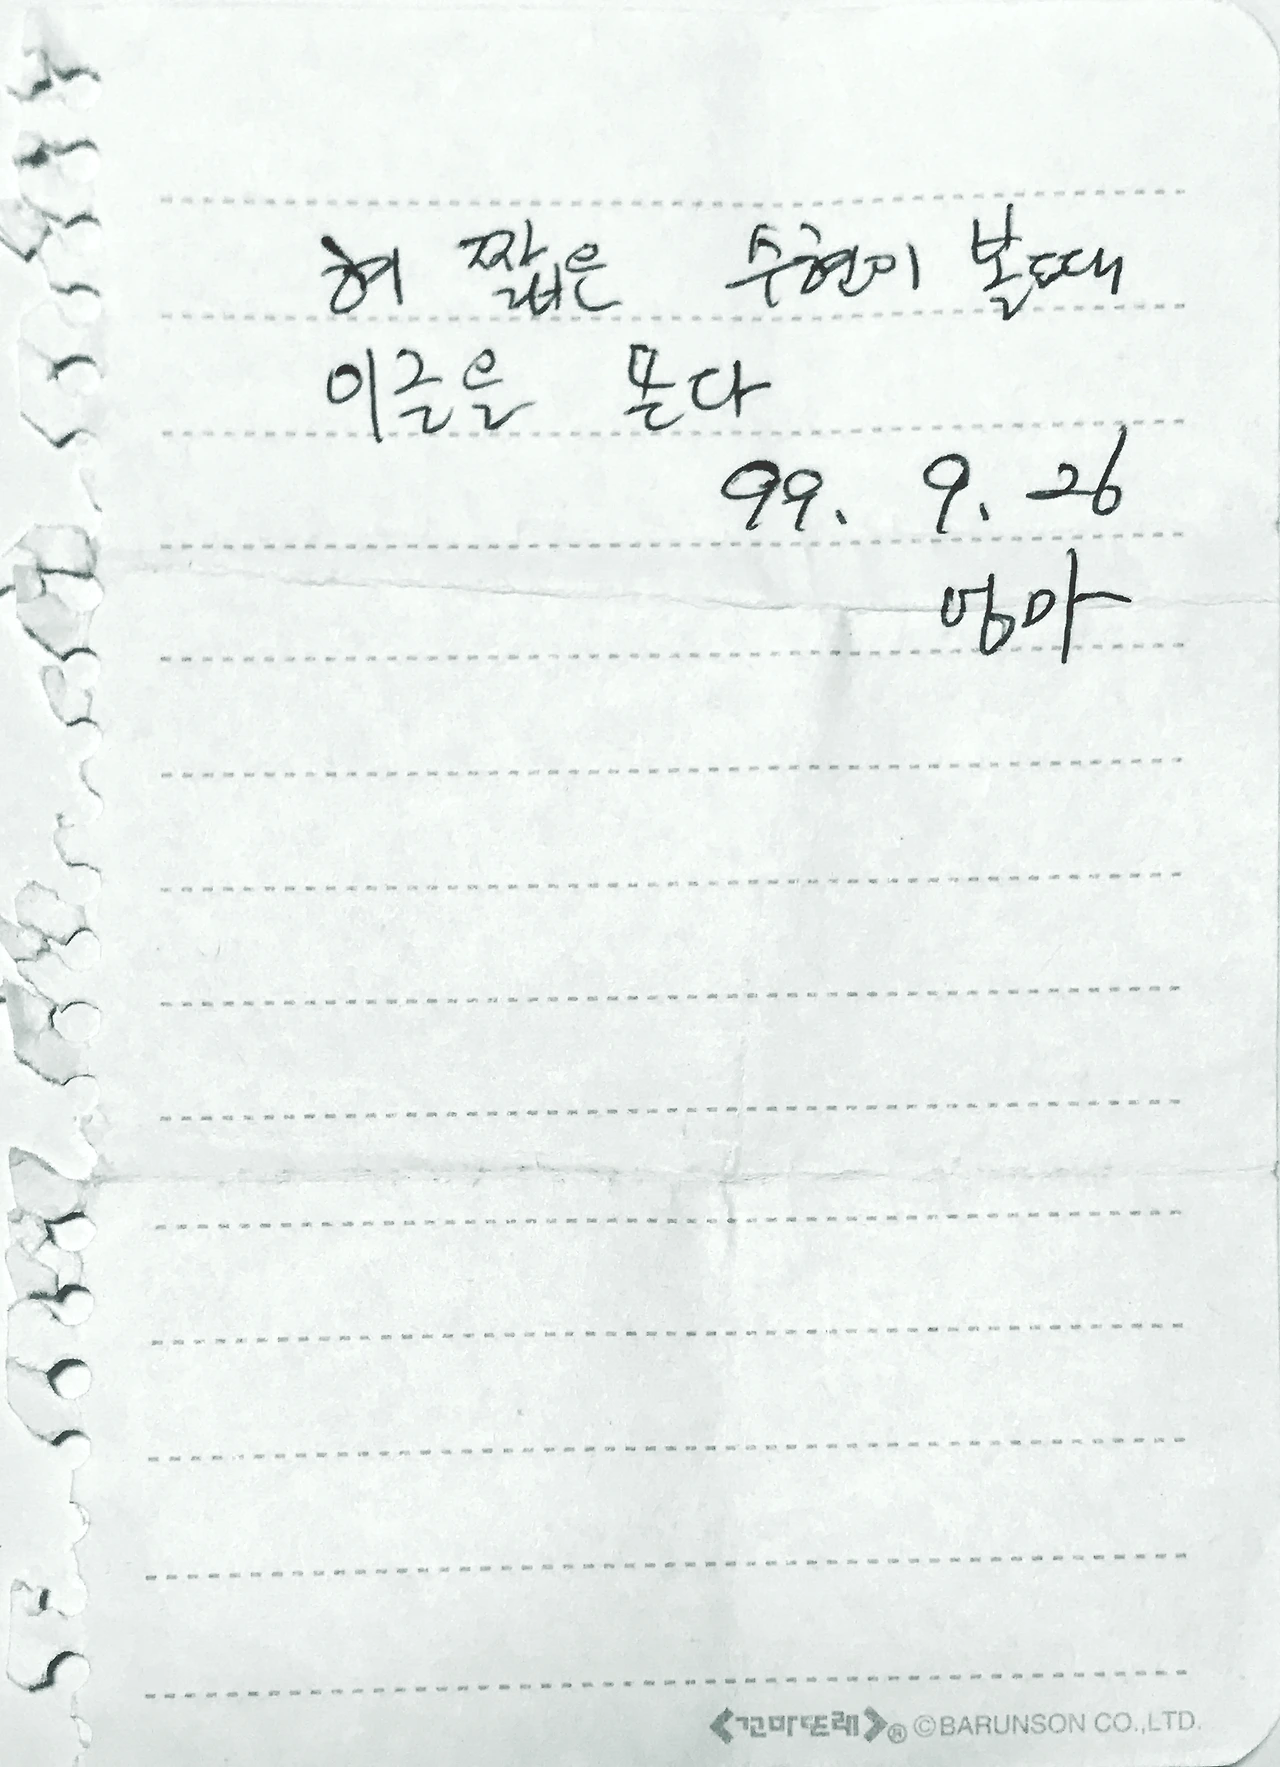 혀 짧은 수현이 볼때
이글을 쫀다
99. 9. 26
엄마
<꼬마또래>® ©BARUNSON CO.,LTD.